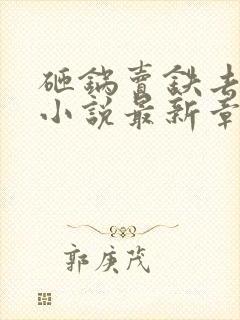 砸鍋賣鉄去
小說最新章
郭庚茂